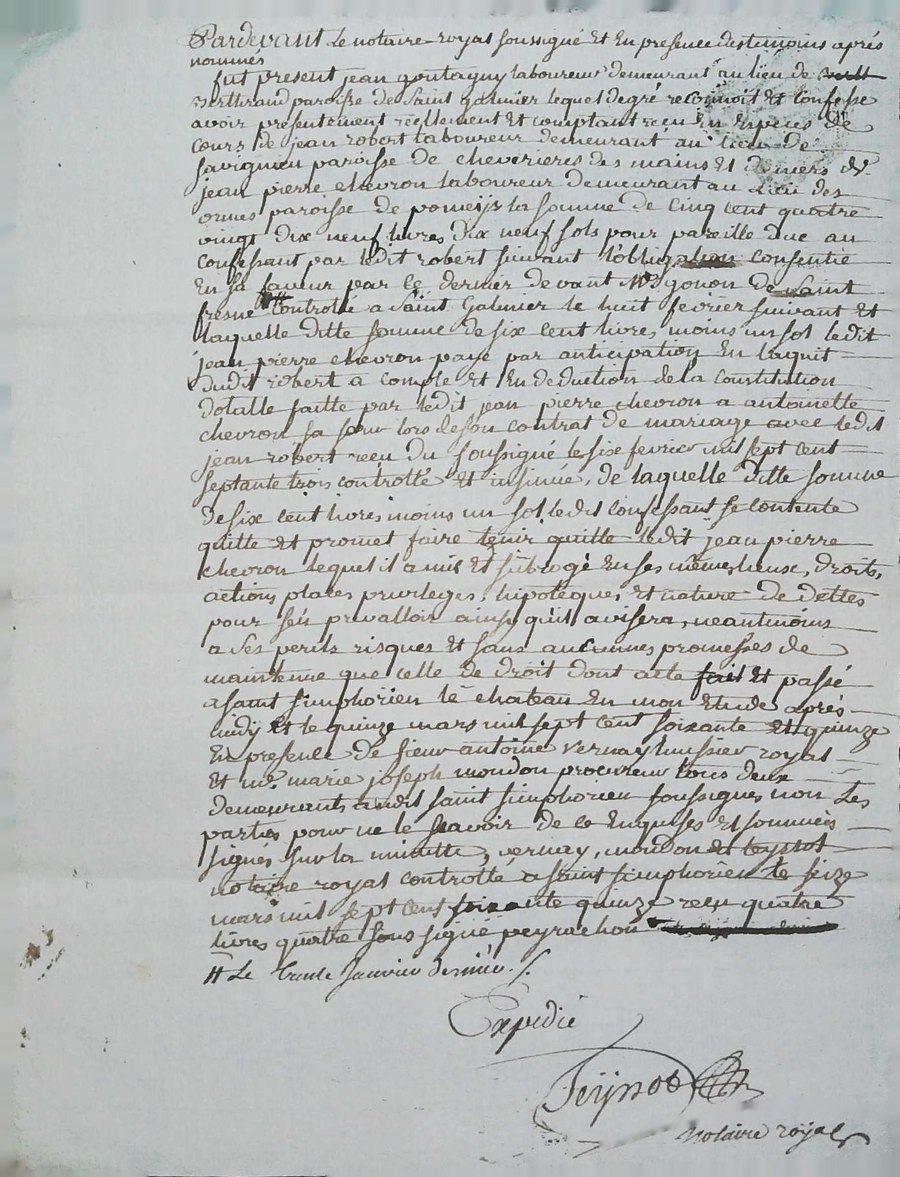 Pardevant Le notaire royal soussigné Et En presence des temoins aprés
nommés
fut present jean goutagny laboureur demeurant au lieu de
Berthrand paroisse de Saint Galmier lequel de gré reconnoit Et confesse
avoir presentement réellement Et comptant recu En Especes de
cours de jean robert laboureur demeurant au lieu de
Savigneu paroisse de cheverieres des mains Et deniers de
jean pierre chevron laboureur demeurant au Lieu des
ormes paroisse de pomeijs la somme de cinq cent quatre
vingt dix neuf livres dix neuf sols pour pareille due au
confessant par ledit robert suivant l'obligation consentie
En sa faveur par ce dernier devant Me gonon de Saint
fresne # Controlé a Saint Galmier le huit fevrier suivant Et
laquelle ditte somme de six cent livres moins un sol ledit
jean pierre chevron paye par anticipation En laquit
dudit robert a compte Et En deduction de la constitution
dotalle faitte par ledit jean pierre chevron a antoinette
chevron sa sœur lors de son contrat de mariage avec ledit
jean robert recu du soussigné le six fevrier mil sept cent
septante trois controllé Et insinué, de laquelle ditte somme
de six cent livres moins un sol ledit confessant se contente
quitte et promet faire tenir quitte ledit jean pierre
chevron lequel il a mis Et subrogé En ses mêmes lieux, droits,
actions places privileges, hipoteques, Et nature de dettes
pour s'en prevalloir ainsy qu'il avisera, neantmoins
a ses perils risques Et sans aucunnes promesses de
maintenue que celle de droit dont acte fait Et passé
a saint simphorien le chateau En mon Etude aprés
midy Et le quinze mars mil sept cent soixante Et quinze
En presence de sieur antoine vernay huissier royal
Et me. marie joseph moudon procureur tous deux
demeurants audit saint simphorien soussignés non Les
parties pour ne le scavoir de ce Enquises Et sommées
signés sur la minutte, vernay, moudon et teyssot
notaire royal controllé a saint simphorien le seize
mars mil sept cent soixante quinze recu quatre
livres quatre sous signé peyrachon
# Le trente janvier dernier
Expedié
Teyssot
notaire royal